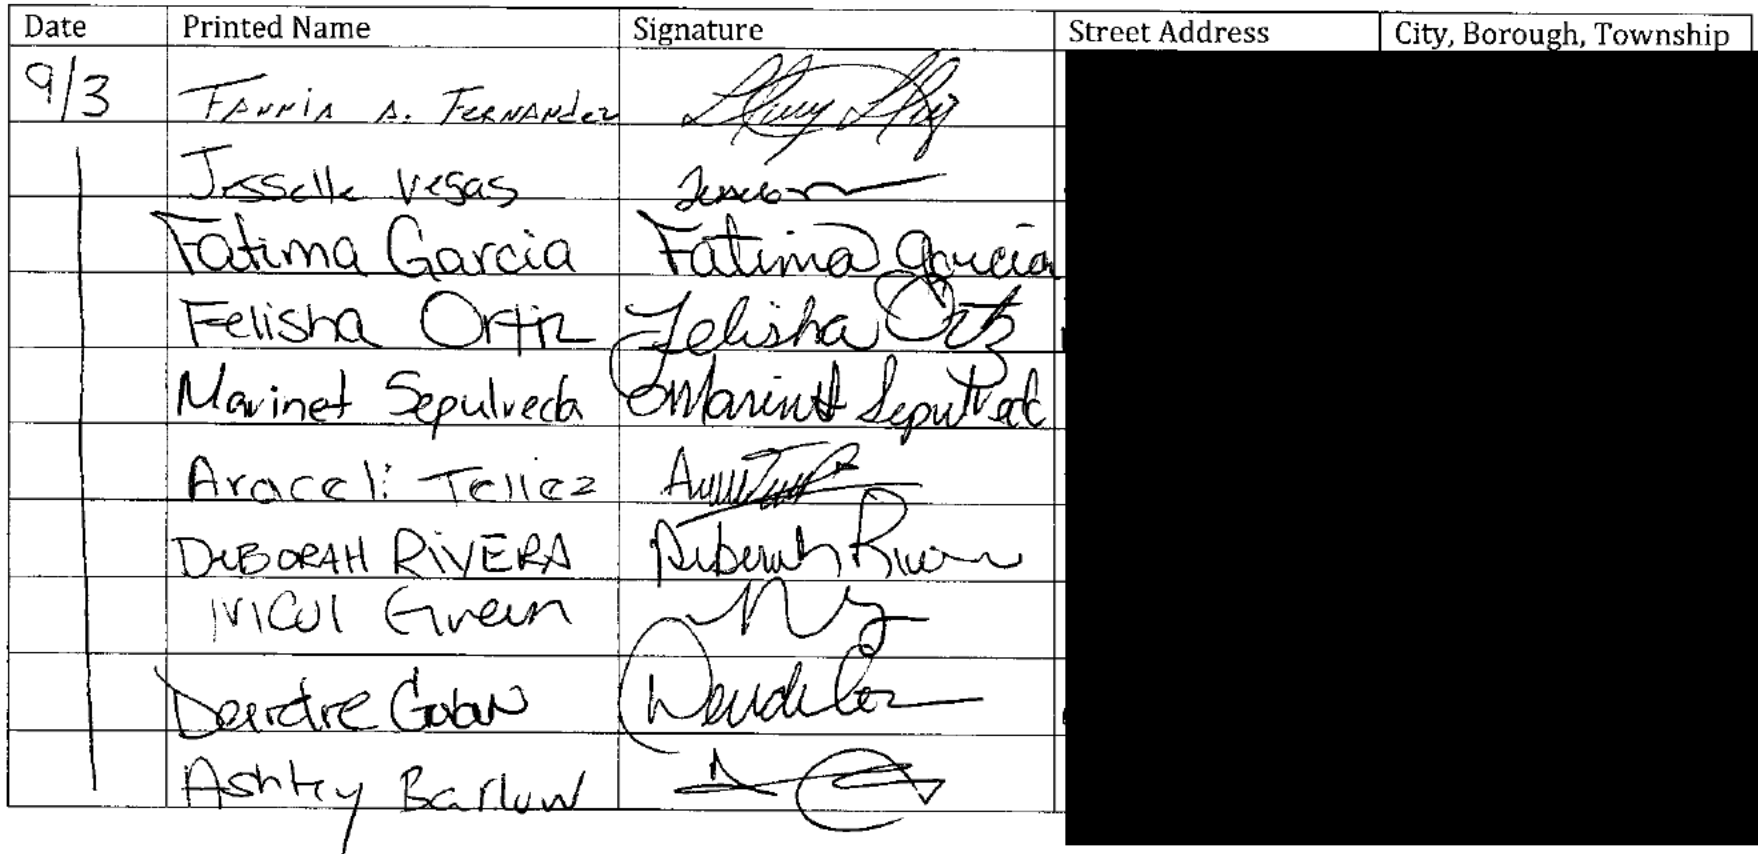 Date Printed Name Signature Street Address City, Borough, Township
9/3 Fannia A. Fernandez
Jesselle Vegas
Fatima Garcia Fatima Garcia
Felisha Ortiz Felisha Ortiz
Marinet Sepulveda Marinet Sepulveda
Araceli Tellez
DEBORAH RIVERA Deborah Rivera
Nicol Green
Deirdre
Ashley Barlow